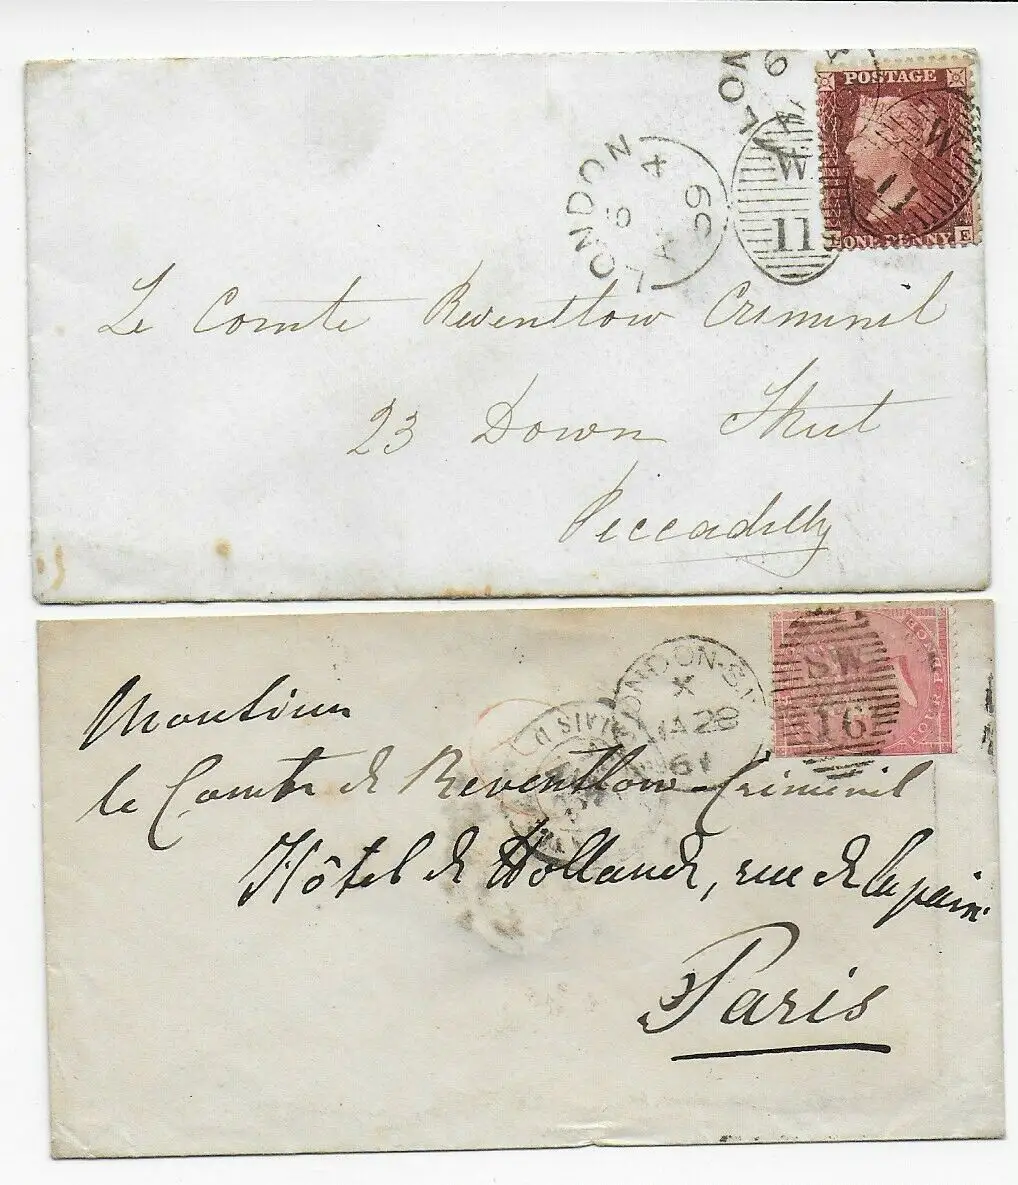 LONDON
W
11
POSTAGE
ONE PENNY
E
W
11
LONDON
4
62
Le Comte Reventlow Criminil
23 Down Street
Piccadilly
LONDON-S.W
X
28
61
SW
16
FOUR PE
Monsieur
le Comte de Reventlow-Criminil
Hôtel de Hollande, rue de la paix.
Paris